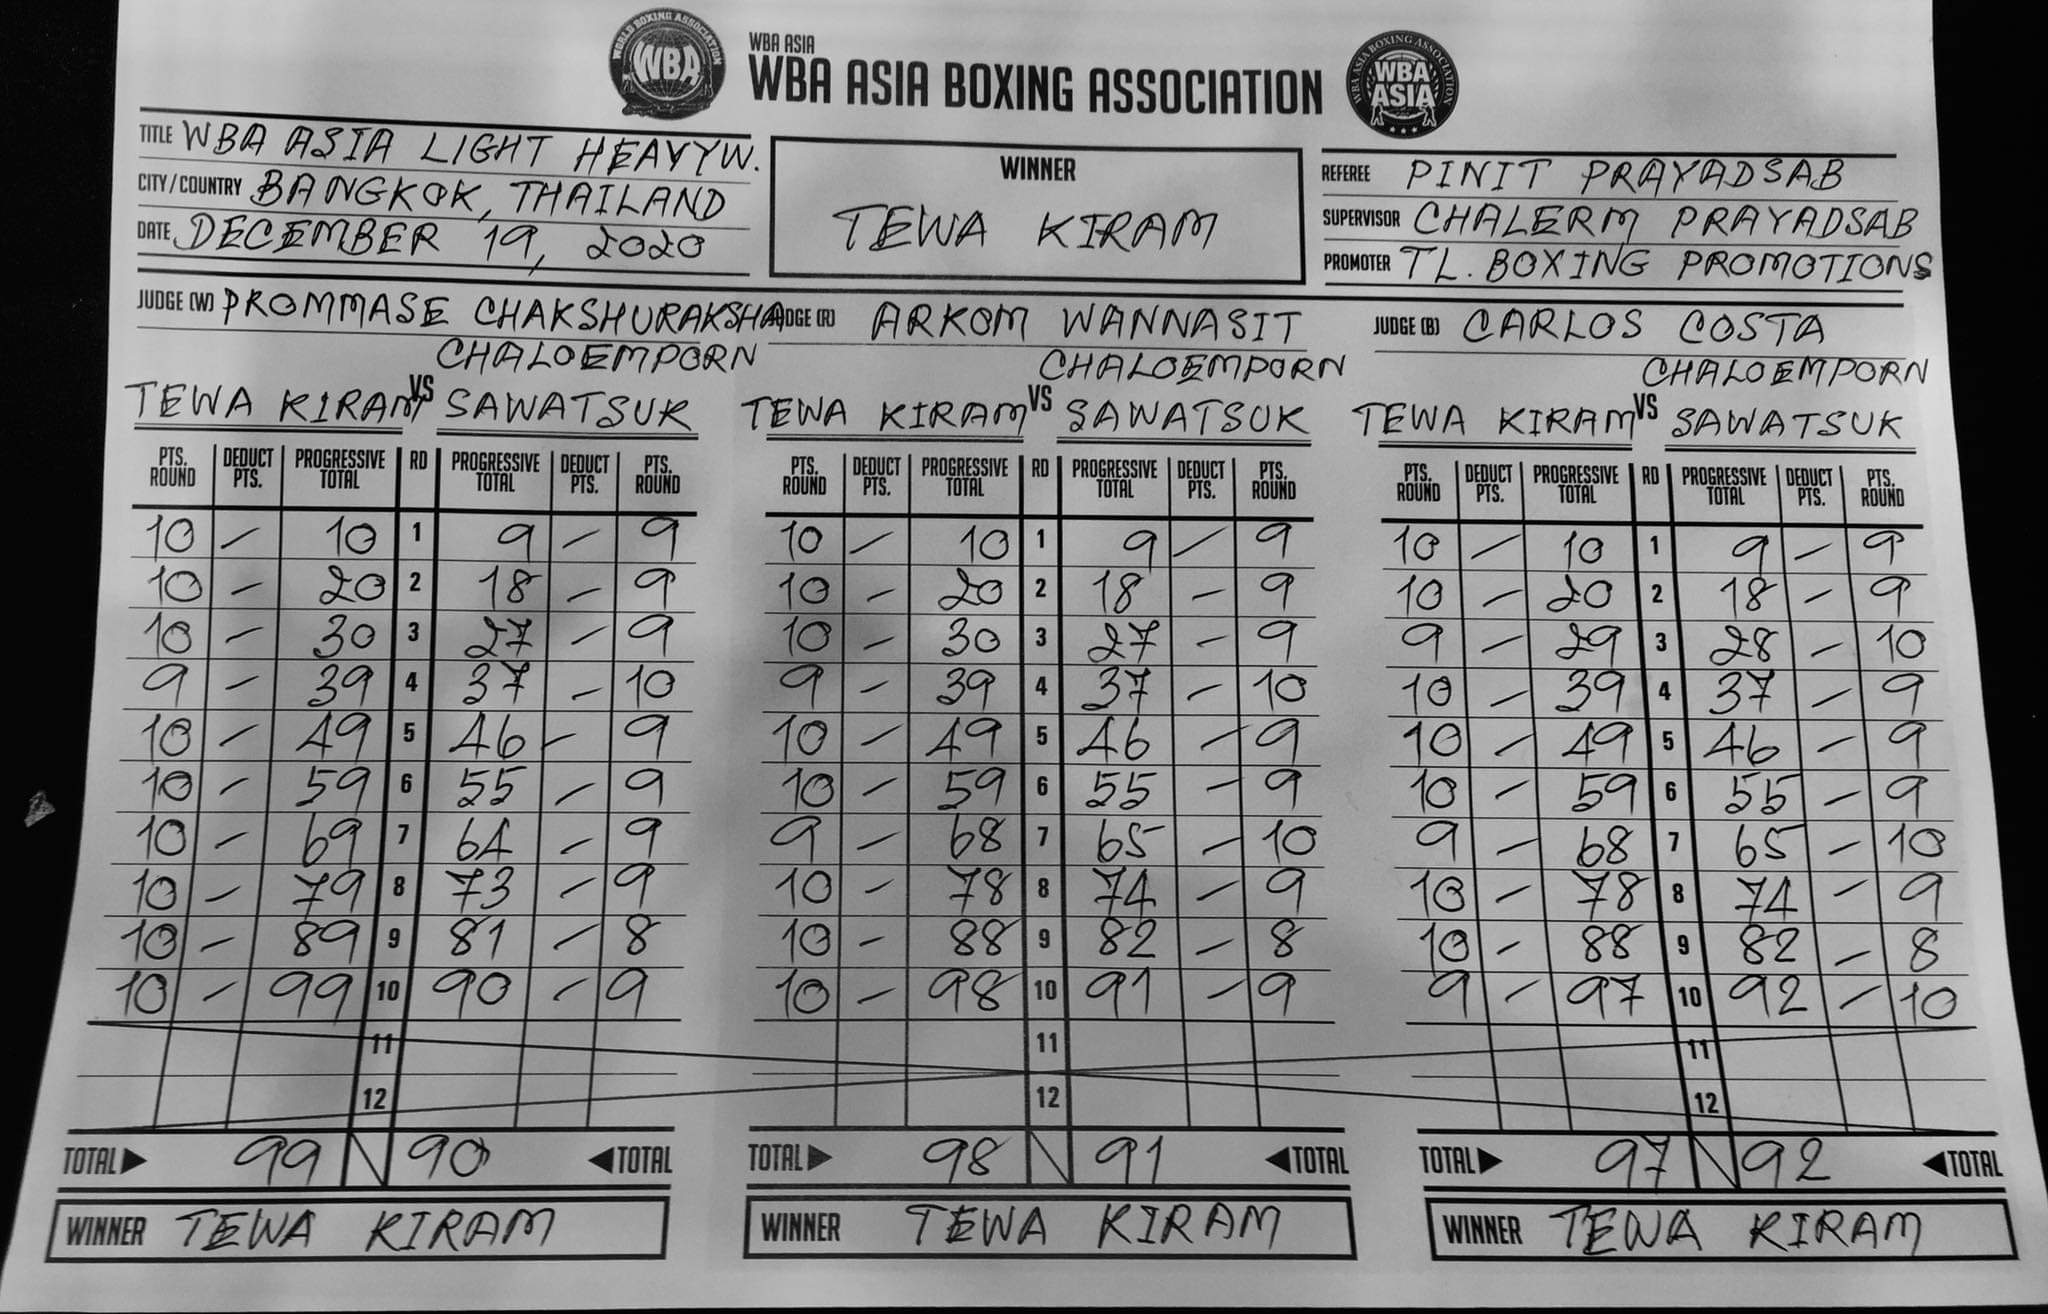 WORLD BOXING ASSOCIATION
WBA
WBA ASIA
WBA ASIA BOXING ASSOCIATION
WBA ASIA BOXING ASSOCIATION
WBA ASIA
TITLE WBA ASIA LIGHT HEAVYW.
CITY/COUNTRY BANGKOK, THAILAND
DATE DECEMBER 19, 2020
WINNER
TEWA KIRAM
REFEREE PINIT PRAYADSAB
SUPERVISOR CHALERM PRAYADSAB
PROMOTER TL. BOXING PROMOTIONS
JUDGE (W) PROMMASE CHAKSHURAKSHA JUDGE (R) ARKOM WANNASIT JUDGE (B) CARLOS COSTA
CHALOEMPORN CHALOEMPORN CHALOEMPORN
TEWA KIRAM VS SAWATSUK TEWA KIRAM VS SAWATSUK TEWA KIRAM VS SAWATSUK
PTS. ROUND DEDUCT PTS. PROGRESSIVE TOTAL RD PROGRESSIVE TOTAL DEDUCT PTS. PTS. ROUND PTS. ROUND DEDUCT PTS. PROGRESSIVE TOTAL RD PROGRESSIVE TOTAL DEDUCT PTS. PTS. ROUND PTS. ROUND DEDUCT PTS. PROGRESSIVE TOTAL RD PROGRESSIVE TOTAL DEDUCT PTS. PTS. ROUND
10 – 10 1 9 – 9 10 – 10 1 9 – 9 10 – 10 1 9 – 9
10 – 20 2 18 – 9 10 – 20 2 18 – 9 10 – 20 2 18 – 9
10 – 30 3 27 – 9 10 – 30 3 27 – 9 9 – 29 3 28 – 10
9 – 39 4 37 – 10 9 – 39 4 37 – 10 10 – 39 4 37 – 9
10 – 49 5 46 – 9 10 – 49 5 46 – 9 10 – 49 5 46 – 9
10 – 59 6 55 – 9 10 – 59 6 55 – 9 10 – 59 6 55 – 9
10 – 69 7 64 – 9 9 – 68 7 65 – 10 9 – 68 7 65 – 10
10 – 79 8 73 – 9 10 – 78 8 74 – 9 10 – 78 8 74 – 9
10 – 89 9 81 – 8 10 – 88 9 82 – 8 10 – 88 9 82 – 8
10 – 99 10 90 – 9 10 – 98 10 91 – 9 9 – 97 10 92 – 10
11 11 11
12 12 12
TOTAL 99 90 TOTAL TOTAL 98 91 TOTAL TOTAL 97 92 TOTAL
WINNER TEWA KIRAM WINNER TEWA KIRAM WINNER TEWA KIRAM